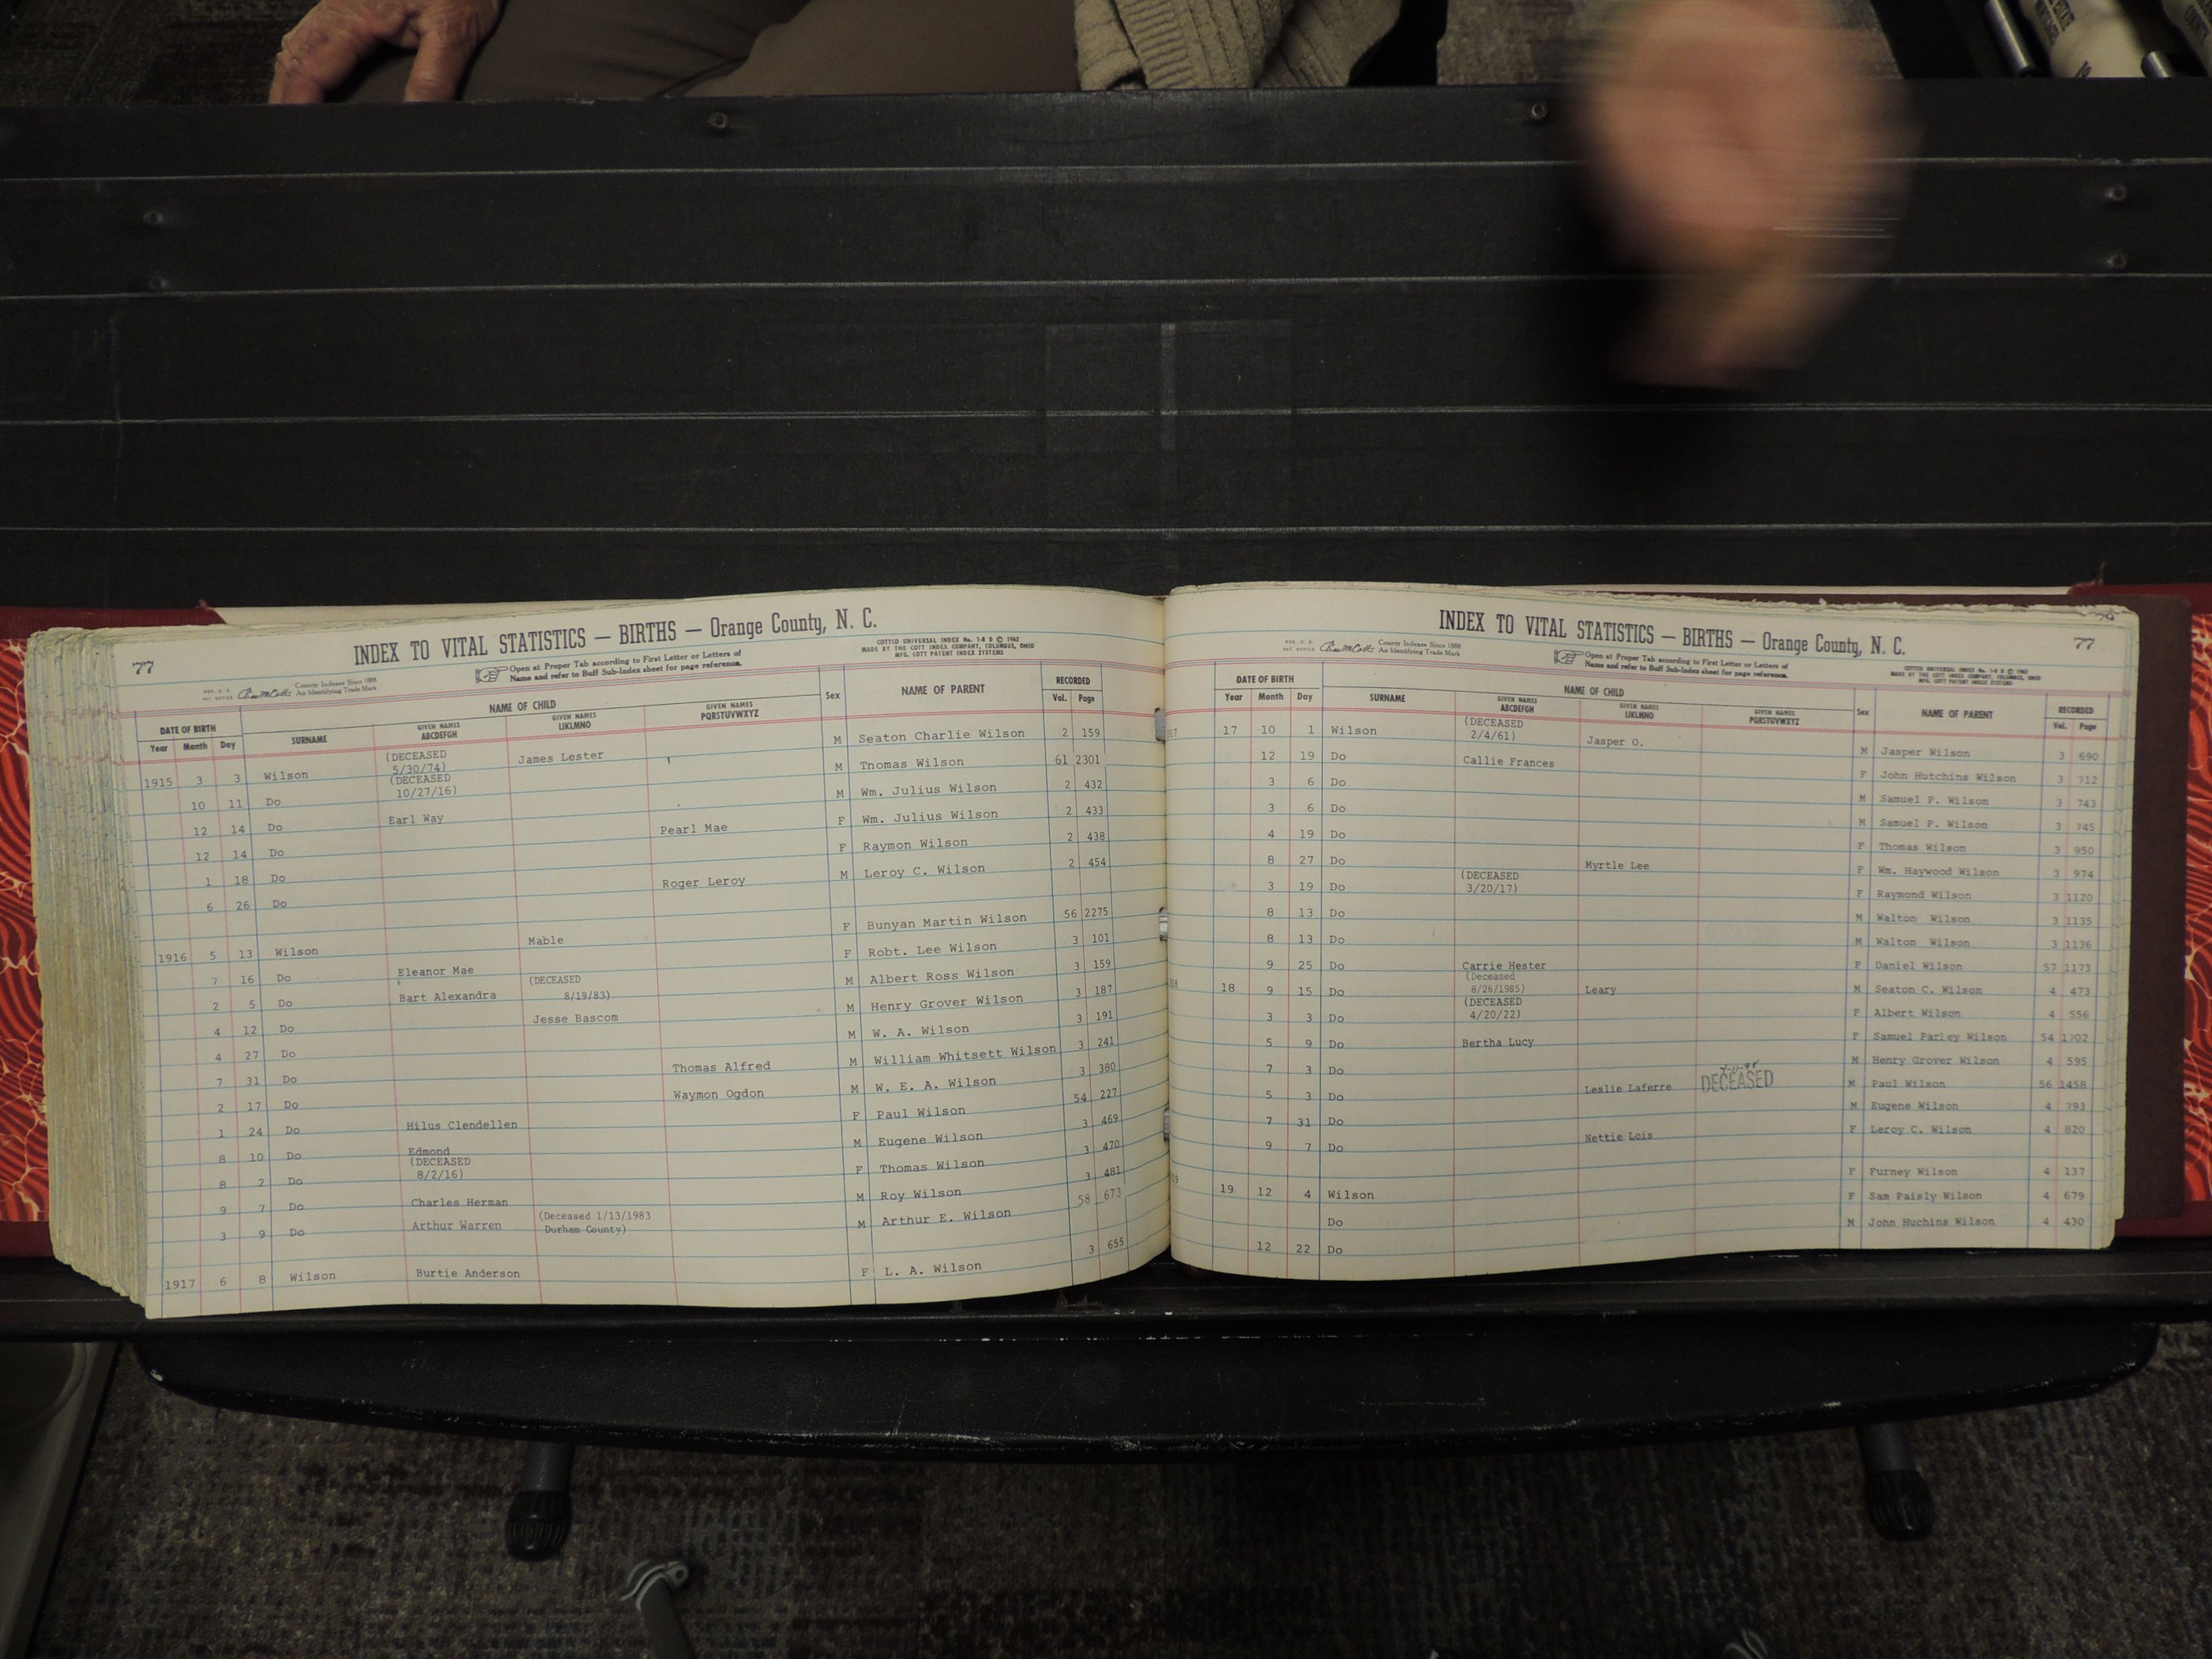 77
INDEX TO VITAL STATISTICS — BIRTHS — Orange County, N. C.
County Indexes Since 1888
An Identifying Trade Mark
Open at Proper Tab according to First Letter or Letters of
Name and refer to Buff Sub-Index sheet for page reference.
COTTCO UNIVERSAL INDEX No. 1-8 D © 1962
MADE BY THE COTT INDEX COMPANY, COLUMBUS, OHIO
MFG. COTT PATENT INDEX SYSTEMS
DATE OF BIRTH NAME OF CHILD Sex NAME OF PARENT RECORDED
Year Month Day SURNAME GIVEN NAMES ABCDEFGH GIVEN NAMES IJKLMNO GIVEN NAMES PQRSTUVWXYZ Vol. Page
1915 3 3 Wilson (DECEASED 5/30/74) James Lester M Seaton Charlie Wilson 2 159
10 11 Do (DECEASED 10/27/16) M Thomas Wilson 61 2301
12 14 Do Earl Way M Wm. Julius Wilson 2 432
12 14 Do Pearl Mae F Wm. Julius Wilson 2 433
1 18 Do F Raymon Wilson 2 438
6 26 Do Roger Leroy M Leroy C. Wilson 2 454
1916 5 13 Wilson Mable F Bunyan Martin Wilson 56 2275
7 16 Do Eleanor Mae F Robt. Lee Wilson 3 101
2 5 Do Bart Alexandra (DECEASED 8/19/83) M Albert Ross Wilson 3 159
4 12 Do Jesse Bascom M Henry Grover Wilson 3 187
4 27 Do M W. A. Wilson 3 191
7 31 Do Thomas Alfred M William Whitsett Wilson 3 241
2 17 Do Waymon Ogdon M W. E. A. Wilson 3 380
1 24 Do Hilus Clendellen F Paul Wilson 54 227
8 10 Do Edmond M Eugene Wilson 3 469
8 2 Do (DECEASED 8/2/16) F Thomas Wilson 3 470
9 7 Do Charles Herman M Roy Wilson 3 481
3 9 Do Arthur Warren (Deceased 1/13/1983 Durham County) M Arthur E. Wilson 58 673
1917 6 8 Wilson Burtie Anderson F L. A. Wilson 3 655
77
INDEX TO VITAL STATISTICS — BIRTHS — Orange County, N. C.
County Indexes Since 1888
An Identifying Trade Mark
Open at Proper Tab according to First Letter or Letters of
Name and refer to Buff Sub-Index sheet for page reference.
COTTCO UNIVERSAL INDEX No. 1-8 D © 1962
MADE BY THE COTT INDEX COMPANY, COLUMBUS, OHIO
MFG. COTT PATENT INDEX SYSTEMS
DATE OF BIRTH NAME OF CHILD Sex NAME OF PARENT RECORDED
Year Month Day SURNAME GIVEN NAMES ABCDEFGH GIVEN NAMES IJKLMNO GIVEN NAMES PQRSTUVWXYZ Vol. Page
17 10 1 Wilson (DECEASED 2/4/61) Jasper O. M Jasper Wilson 3 690
12 19 Do Callie Frances F John Hutchins Wilson 3 712
3 6 Do M Samuel P. Wilson 3 743
3 6 Do M Samuel P. Wilson 3 745
4 19 Do F Thomas Wilson 3 950
8 27 Do Myrtle Lee F Wm. Haywood Wilson 3 974
3 19 Do (DECEASED 3/20/17) F Raymond Wilson 3 1120
8 13 Do M Walton Wilson 3 1135
8 13 Do M Walton Wilson 3 1136
9 25 Do Carrie Hester F Daniel Wilson 57 1173
18 9 15 Do (Deceased 8/26/1985) Leary M Seaton C. Wilson 4 473
3 3 Do (DECEASED 4/20/22) F Albert Wilson 4 556
5 9 Do Bertha Lucy F Samuel Parley Wilson 54 1702
7 3 Do M Henry Grover Wilson 4 595
5 3 Do Leslie Laferre DECEASED M Paul Wilson 56 1458
7 31 Do M Eugene Wilson 4 793
9 7 Do Nettie Lois F Leroy C. Wilson 4 820
19 12 4 Wilson F Furney Wilson 4 137
Do F Sam Paisly Wilson 4 679
12 22 Do M John Huchins Wilson 4 430